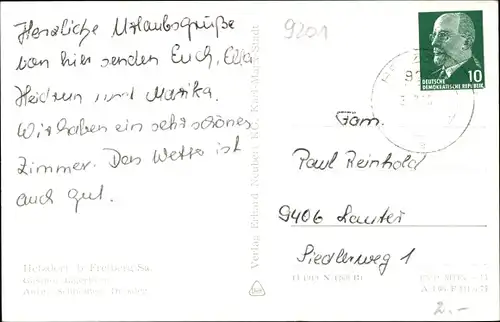 Herzliche Urlaubsgrüße
von hier senden Euch, Ella
Heidrun und Marika.
Wir haben ein sehr schönes
Zimmer. Das Wetter ist
auch gut.
Hetzdorf b. Freiberg/Sa.
Verlag Erhard Neubert KG, Karl-Marx-Stadt
9201
DEUTSCHE
DEMOKRATISCHE REPUBLIK
10
Fam.
Paul Reinhold
9406 Lauter
Siedlerweg 1
2.-